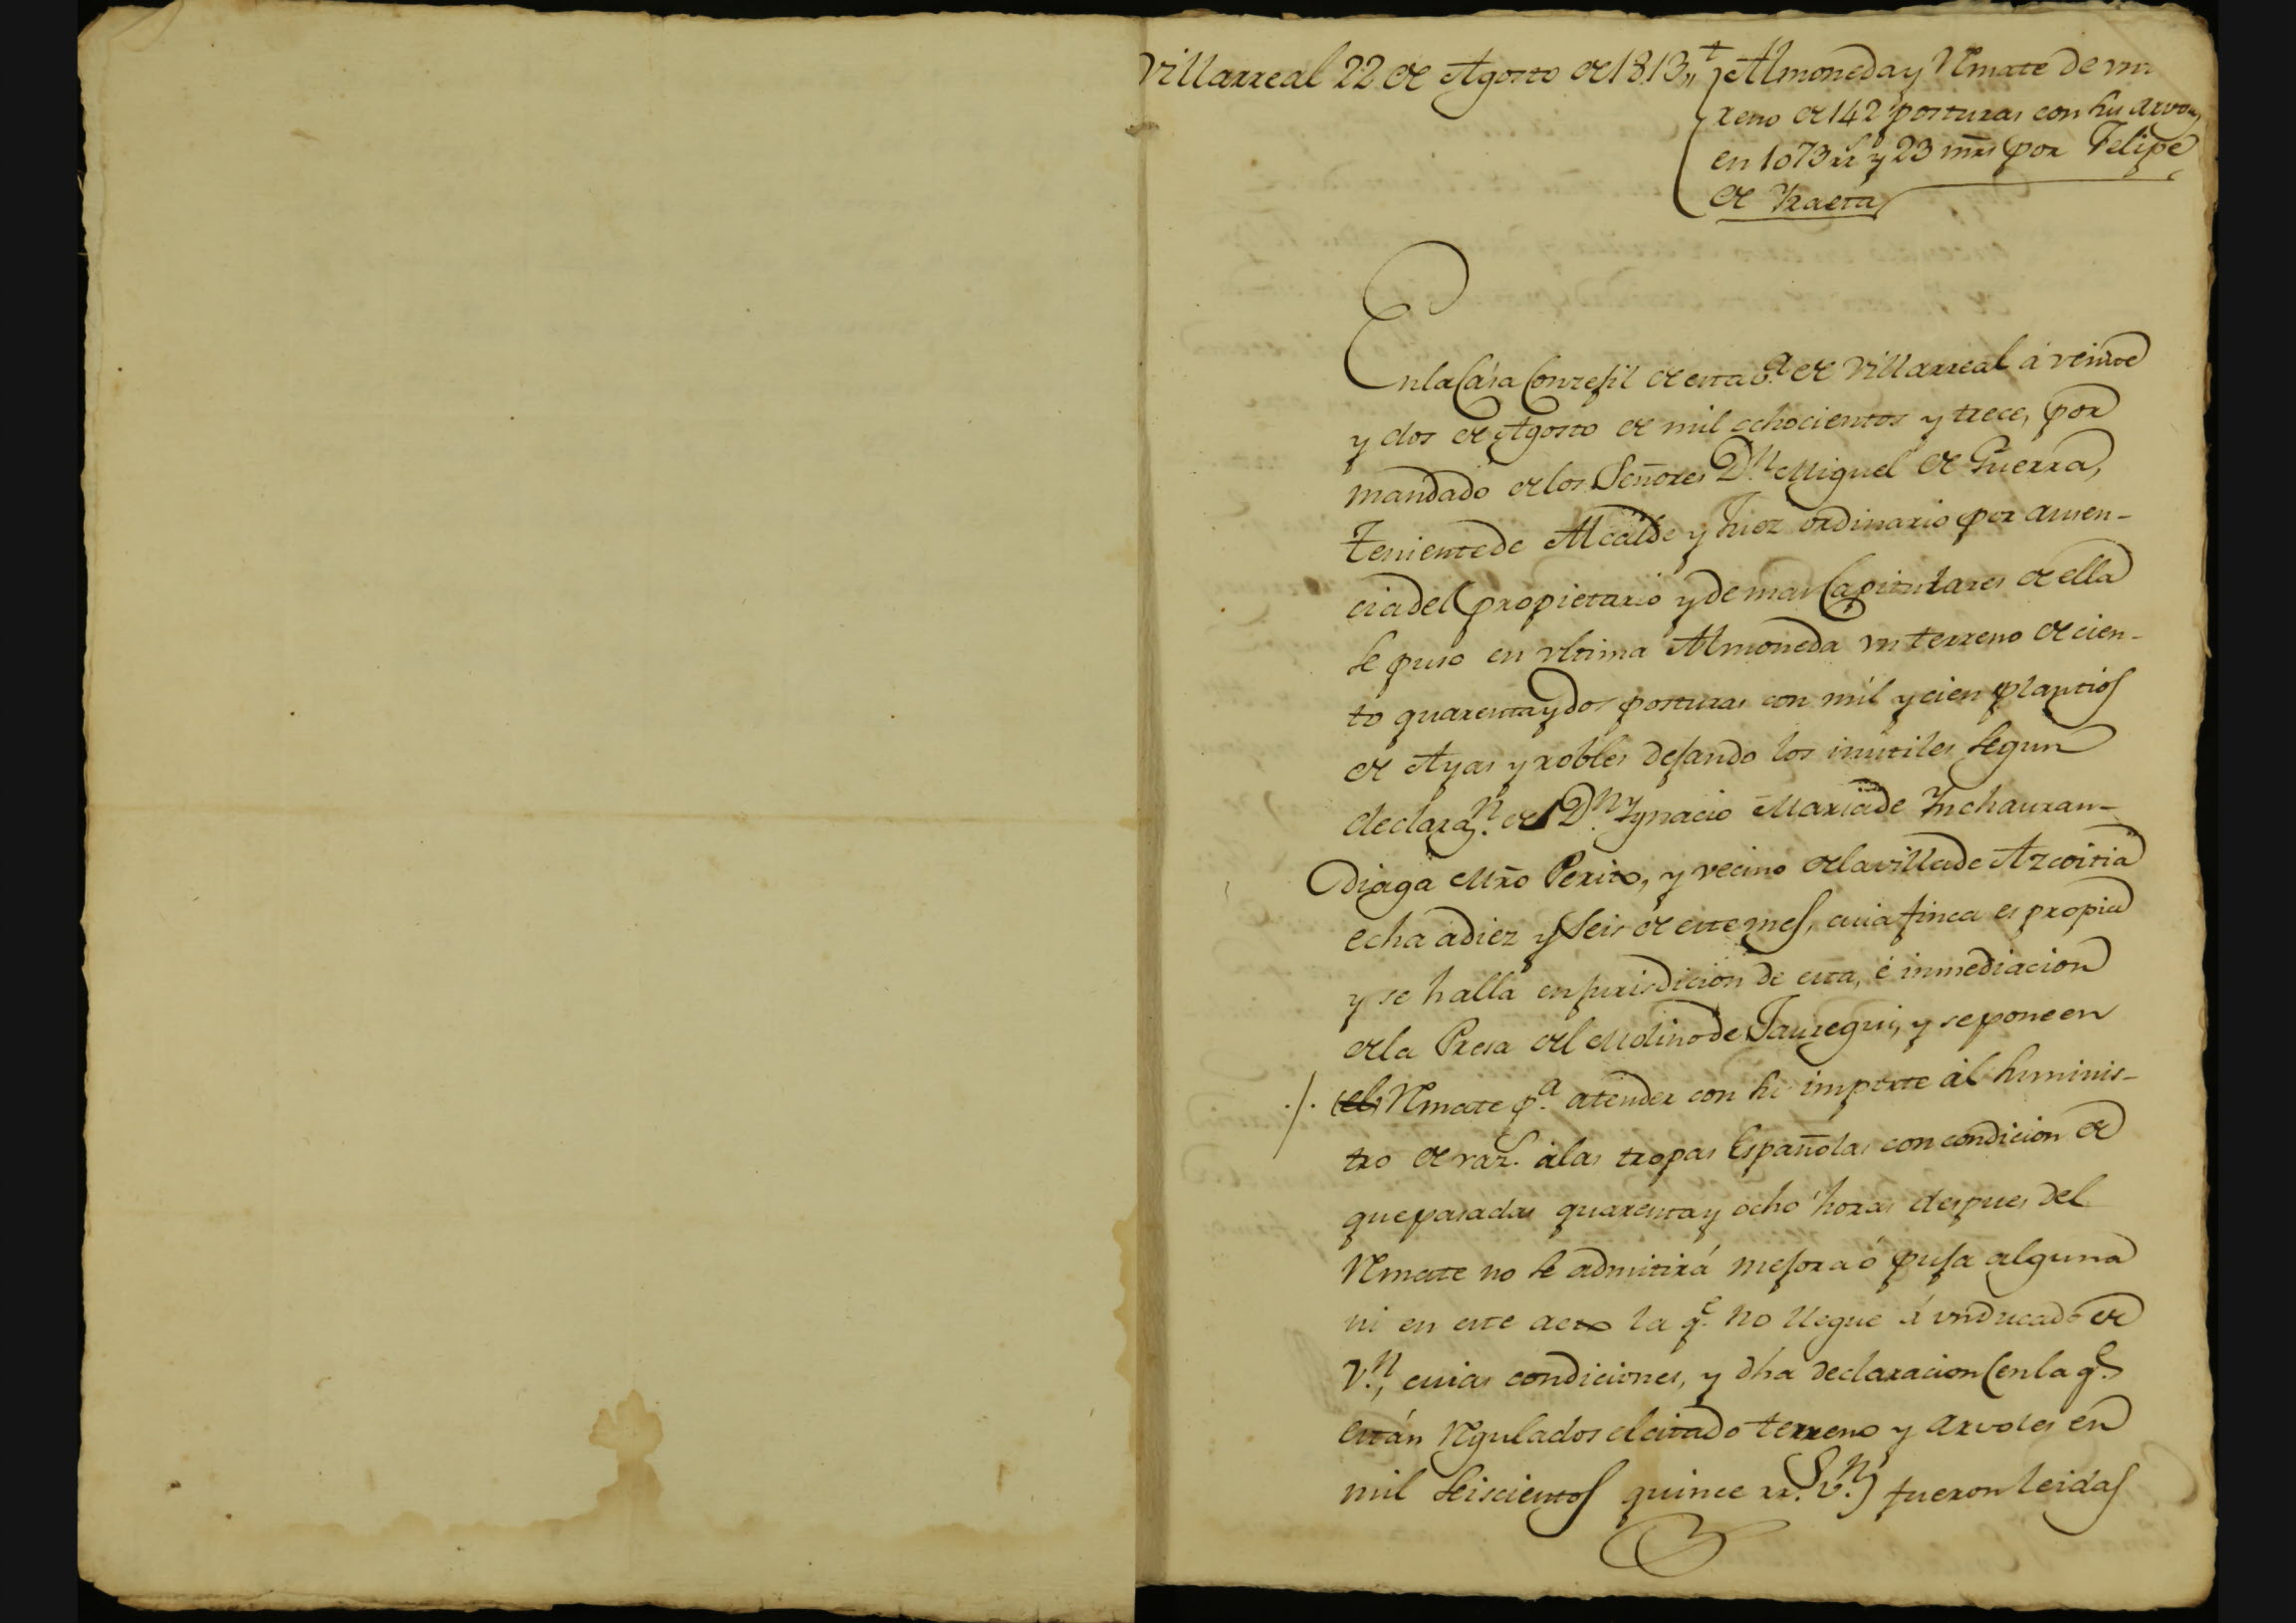 Villarreal 22 de Agosto de 1813,, Almoneda y Rmate de un
rreno de 142 posturas con su arvon,
en 1073 rs y 23 mrs por Felipe
de Yraeta
En la Casa Conzejil de esta va. de Villarreal á veinte
y dos de Agosto de mil ochocientos y trece, por
mandado de los Señores Dn. Miguel de Guerra,
Teniente de Alcalde y Juez ordinario por ausen-
cia del propietario y demas Capitulares de ella
se puso en vltima Almoneda vn terreno de cien-
to quarenta y dos posturas con mil y cien plantios
de Ayas y robles dejando los inutiles segun
declarazn. de Dn. Ygnacio Maria de Ynchauran-
diaga Mro Perito, y vecino de la villa de Azcoitia
echa a diez y seis de este mes, cuia finca es propia
y se halla en jurisdicion de esta, é inmediacion
de la Presa del Molino de Jauregui, y se pone en
./. (el) Rmate pa. atender con su importe al suminis-
tro de raz. a las tropas Españolas con condicion de
que pasadas quarenta y ocho horas despues del
Rmate no se admitirá mejora ó puja alguna
ni en este acto la qe. no llegue á vn ducado de
Vn., cuias condiciones, y dha declaracion (en la ql.
están Rgulados el citado terreno y arvoles en
mil seiscientos quince rrs. vn.) fueron leidas